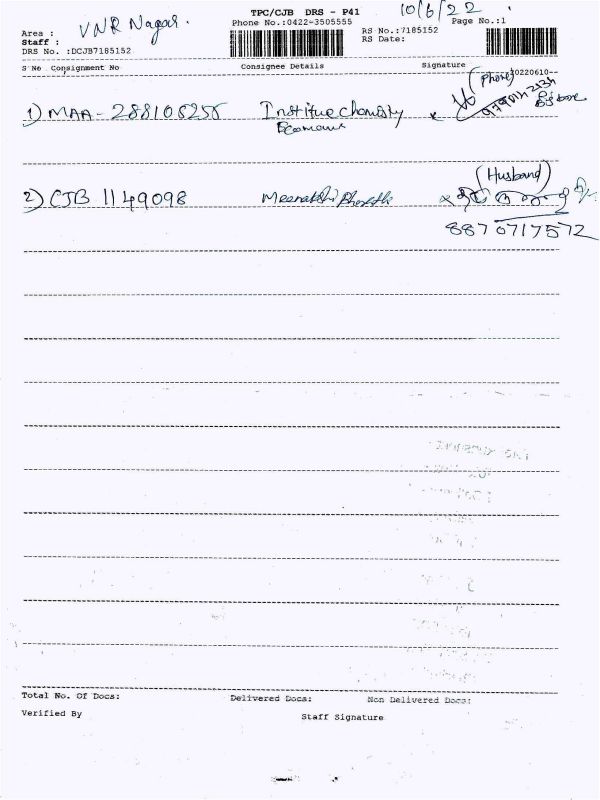 TPC/CJB DRS - P41
10/6/22
Area : VNR Nagar.
Phone No.:0422-3505555
Page No.:1
Staff :
RS No.:7185152
DRS No. :DCJB7185152
RS Date:
S No Consignment No Consignee Details Signature
20220610--
(Phone)
1) MAA - 288106256 Institue Chomisty
(Husband)
2) CJB 1149098 Meenakshi
8870717572
Total No. Of Docs: Delivered Docs: Non Delivered Docs:
Verified By Staff Signature